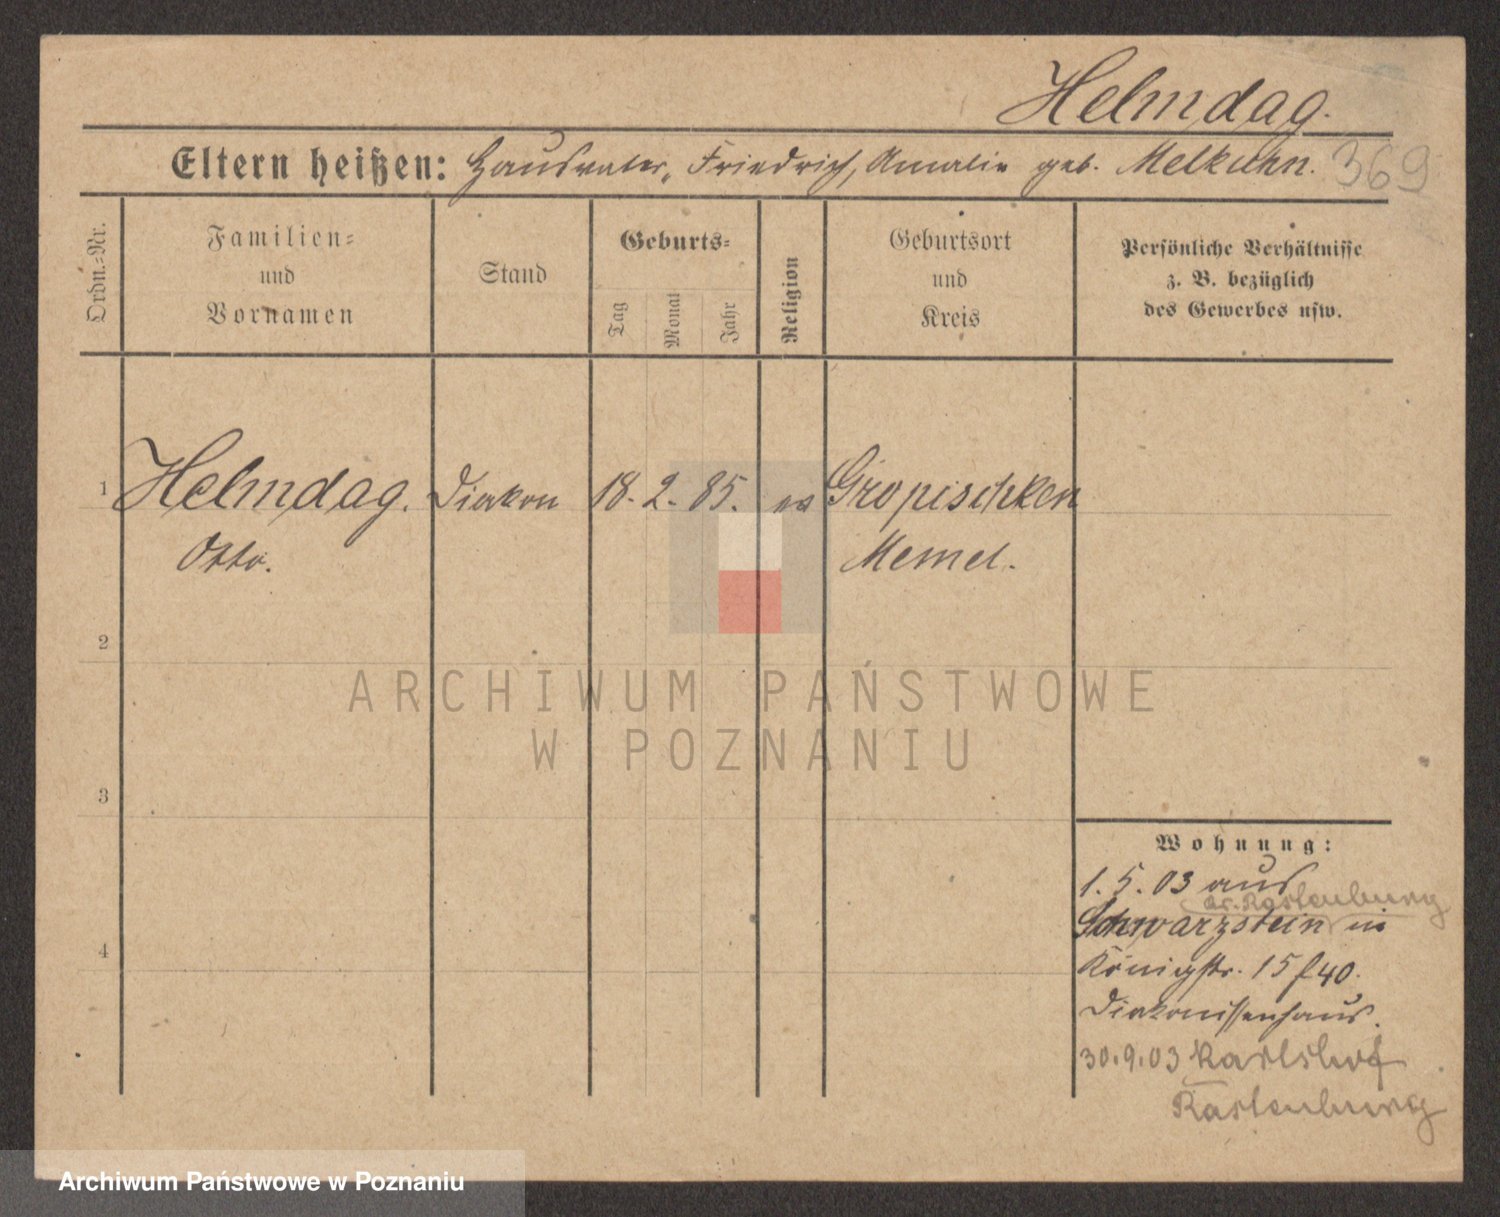 Helmdag.
Eltern heißen: Hausvater, Friedrich, Amalie geb. Melkuhn. 369
Ordn.-Nr.
Familien-
und
Vornamen
Stand
Geburts-
Tag
Monat
Jahr
Religion
Geburtsort
und
Kreis
Persönliche Verhältnisse
z. B. bezüglich
des Gewerbes usw.
1 Helmdag. Diakon 18. 2. 85. ev Gropischken
Otto. Memel.
2
3
4
Wohnung:
1. 5. 03 aus
Kr. Rastenburg
Schwarzstein in
Königstr. 15 f 40.
Diakonissenhaus.
30.9.03 Karlshof
Rastenburg
ARCHIWUM PAŃSTWOWE
W POZNANIU
Archiwum Państwowe w Poznaniu